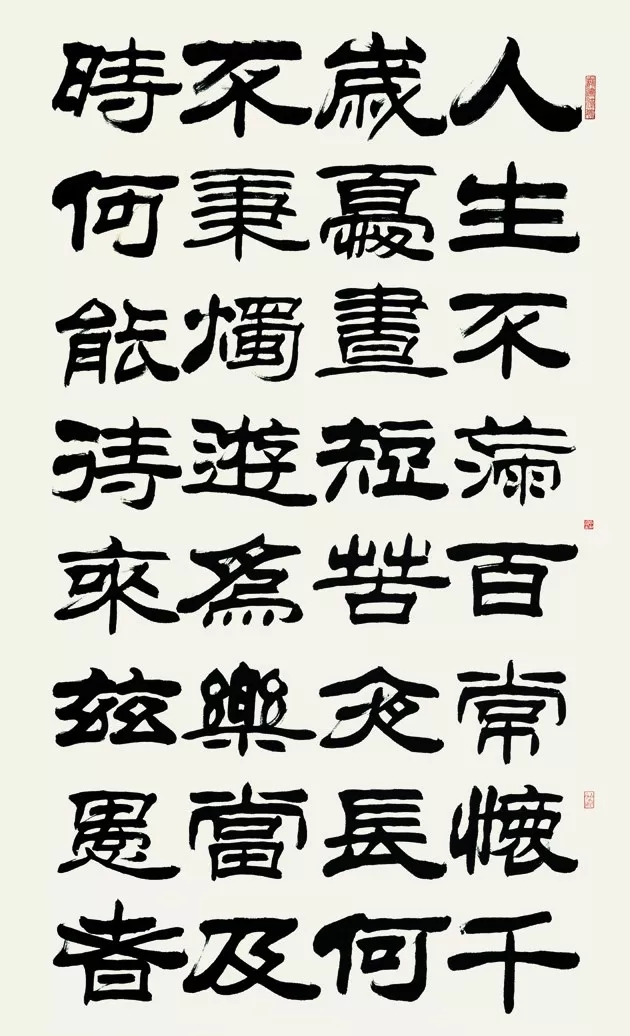 人生不滿百常懷千
歲憂晝短苦夜長何
不秉燭遊爲樂當及
時何能待來茲愚者